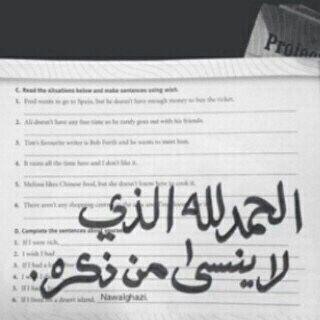 C. Read the situations below and make sentences using wish.
1. Fred wants to go to Spain, but he doesn't have enough money to buy the ticket.
2. Ali doesn't have any free time so he rarely goes out with his friends.
3. Tim's favourite writer is Bob Forth and he wants to meet him.
4. It rains all the time here and I don't like it.
5. Melissa likes Chinese food, but she doesn't know how to cook it.
6. There aren't any shopping
الحمدلله الذي
D. Complete the sentences about yourself.
1. If I were rich,
2. I wish I had
3. If I had a
لا ينسى من ذكره.
4. I wish
5. If I had
6. If I lived on a desert island,
Nawalghazi.